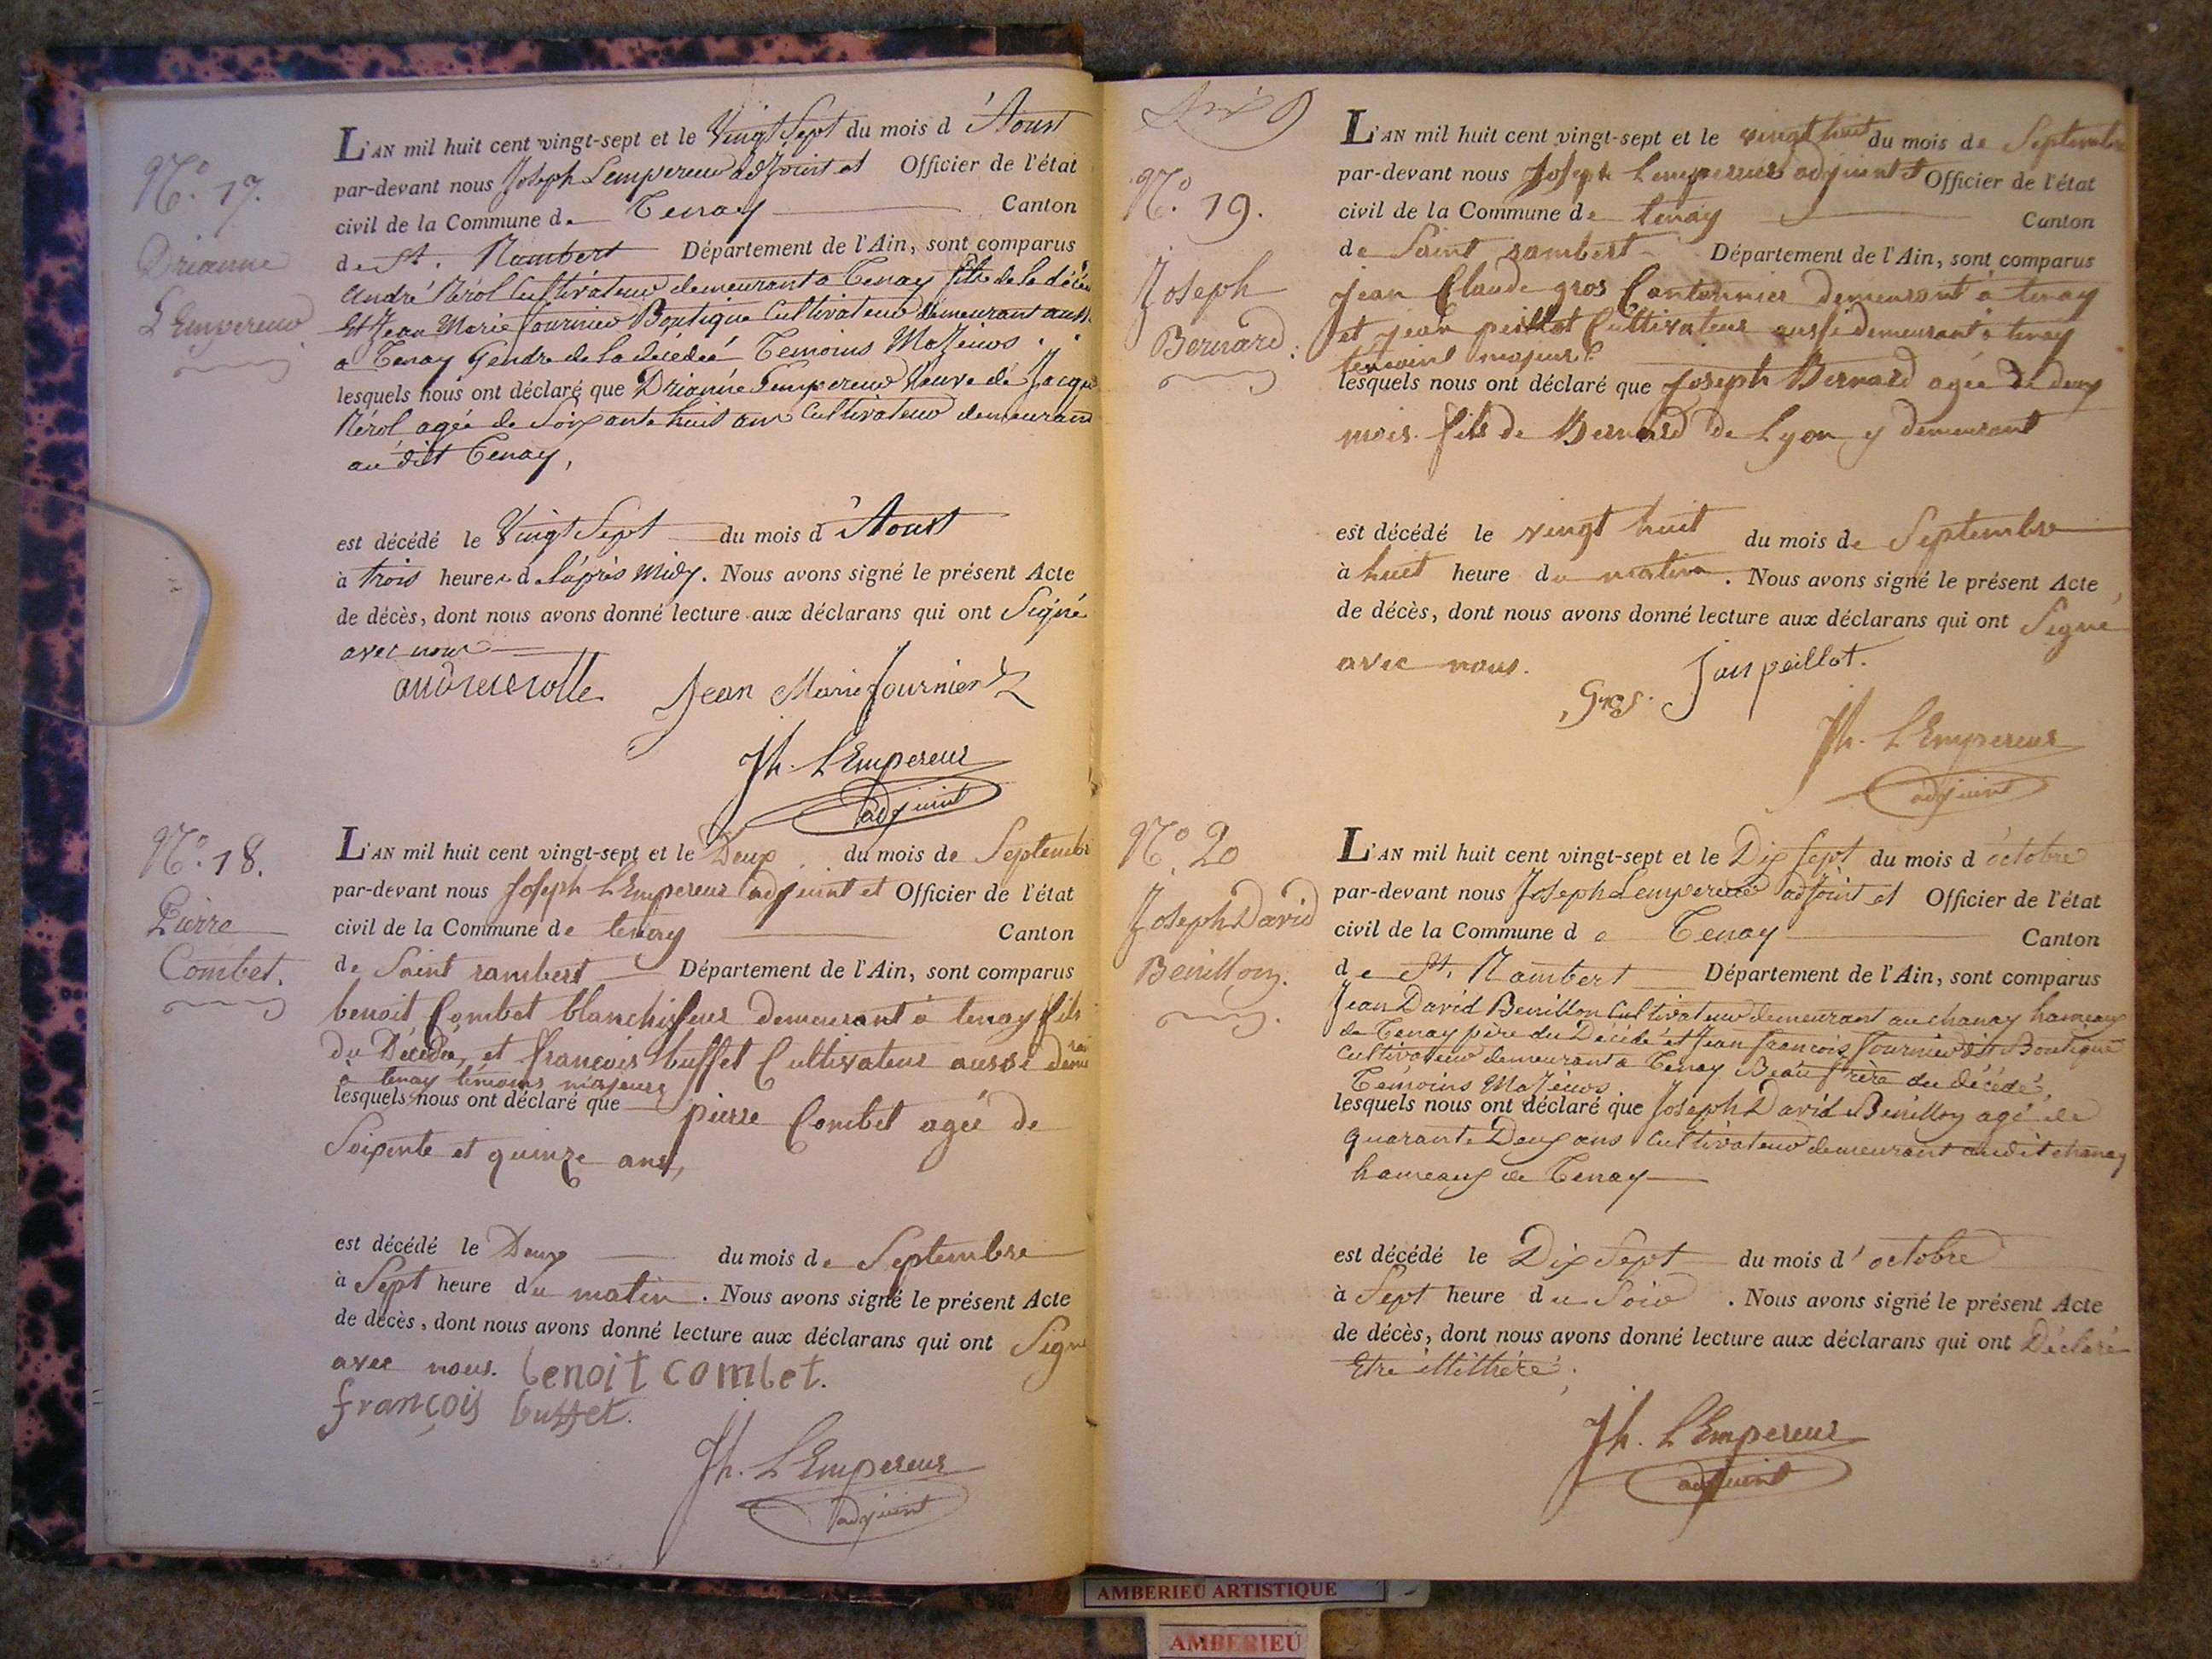 N.º 17.
Drianne
L'Empereur
L'AN mil huit cent vingt-sept et le Vingt Sept du mois d'Aoust
par-devant nous Joseph Lempereur adjoint et Officier de l'état
civil de la Commune de Tenay Canton
de St. Rambert Département de l'Ain, sont comparus
André Rérol Cultivateur demeurant a Tenay fils de la décéd
Et Jean Marie fournier Boutique Cultivateur demeurant aussi
a Tenay Gendre de la décédée Temoins Majeurs.
lesquels nous ont déclaré que Drianne Lempereur Veuve de Jacque
Rérol agée de Soixante huit ans Cultivateur demeurand
au dit Tenay,
est décédé le Vingt Sept du mois d'Aoust
à trois heures d L'après midy. Nous avons signé le présent Acte
de décès, dont nous avons donné lecture aux déclarans qui ont Signé
avec nous
Jean Marie fournier
Jh. L'Empereur
adjoint
N.º 18.
Pierre
Combet.
L'AN mil huit cent vingt-sept et le Deux du mois de Septembr
par-devant nous Joseph L'Empereur adjoint et Officier de l'état
civil de la Commune de tenay Canton
de Saint rambert Département de l'Ain, sont comparus
benoit Combet blanchisseur demeurant à tenay fils
du Décédé, et françois buffet Cultivateur aussi demeu
rant
à tenay témoins majeurs
lesquels nous ont déclaré que pierre Combet agée de
Soixente et quinze ans,
est décédé le Deux du mois de Septembre
à Sept heure du matin. Nous avons signé le présent Acte
de décès, dont nous avons donné lecture aux déclarans qui ont Signé
avec nous. benoit combet.
françois buffet.
Jh. L'Empereur
adjoint
N.º 19.
Joseph
Bernard.
L'AN mil huit cent vingt-sept et le vingt huit du mois de Septembre
par-devant nous Joseph Lempereur adjoint et Officier de l'état
civil de la Commune de tenay Canton
de Saint rambert Département de l'Ain, sont comparus
jean Claude gros Cantonnier demeurant à tenay
et jean peillot Cultivateur aussi demeurant à tenay
temoins majeurs
lesquels nous ont déclaré que joseph Bernard agée de deux
mois fils de Bernard de Lyon y demeurant
est décédé le vingt huit du mois de Septembre
à huit heure du matin. Nous avons signé le présent Acte
de décès, dont nous avons donné lecture aux déclarans qui ont Signé
avec nous. Jan peillot.
Gros.
Jh. L'Empereur
adjoint
N.º 20
Joseph David
Benillon.
L'AN mil huit cent vingt-sept et le Dix Sept du mois d'octobre
par-devant nous Joseph Lempereur adjoint et Officier de l'état
civil de la Commune de Tenay Canton
de St. Rambert Département de l'Ain, sont comparus
Jean David Benillon Cultivateur demeurant au chanay hameaux
de Tenay père du Décédé et Jean francois fournier dit Boutique
Cultivateur demeurant a Tenay Beau frère du décédé,
Témoins Majeurs
lesquels nous ont déclaré que Joseph David Benillon agé de
quarante Deux ans Cultivateur demeurant audit chanay
hameaux de Tenay
est décédé le Dix Sept du mois d'octobre
à Sept heure du Soir. Nous avons signé le présent Acte
de décès, dont nous avons donné lecture aux déclarans qui ont Déclaré
Etre illithéré.
Jh. L'Empereur
adjoint
AMBERIEU ARTISTIQUE
AMBERIEU